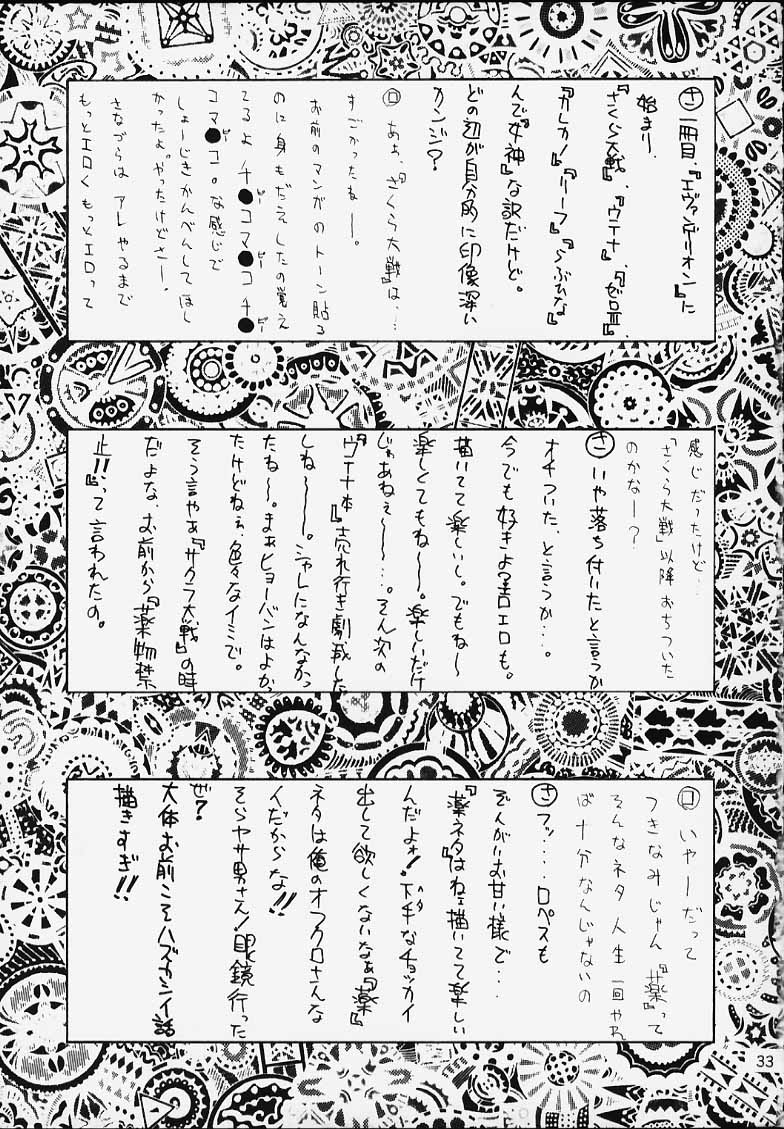 さ 一冊目、『エヴァンゲリオン』に
始まり、
『さくら大戦』、『ウテナ』、『ゼロIII』、
『カレカノ』『リーフ』『らぶひな』
んで『女神』な訳だけど。
どの辺が自分的に印像深い
カンジ?
ロ あぁ、『さくら大戦』は…
すごかったねー。
お前のマンガのトーン貼る
のに身もだえしたの覚え
てるよ チ●コマ●コチ●
ピー ピー ピー
コマ●コ。な感じで
ピー
しょーじきかんべんしてほし
かったよ。やったけどさー、
さなづらは アレやるまで
もっとエロくもっとエロって
感じだったけど…
「さくら大戦」以降おちついた
のかなー?
さ いや落ち付いたと言うか
オチついた、と言うか…。
今でも好きよ?エロエロも。
描いてて楽しいし。でもね〜
楽しくてもね〜〜。楽しいだけ
じゃあねぇ〜〜…。そん次の
『ウテナ本』売れ行き劇減した
しね〜〜〜。シャレになんなかっ
たね〜〜。まぁヒョーバンはよかっ
たけどねぇ、色々なイミで。
そう言やぁ『サクラ大戦』の時
だよな、お前から『薬物禁
止!!』って言われたの。
ロ いやーだって
つきなみじゃん 『薬』って
そんなネタ人生一回やれ
ば十分なんじゃないの
さ フッ…。ロペスも
ぞんがいお甘い様で…
『薬ネタ』はねェ描いてて楽しい
んだよォ!下手なチョッカイ
ヘタ
出して欲しくないなぁ『薬』
ネタは俺のオフクロさんな
んだからな!!
そらヤサ男さん!眼鏡行った
ぜ?
大体お前こそハズカシイ話
描きすぎ!!
33